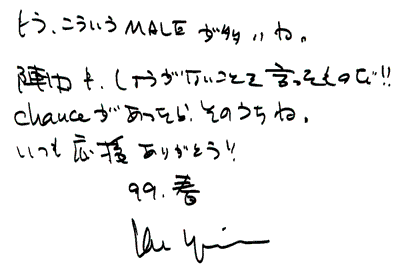 そう、こういう MALE が多いね。
陣内も、しょうがないことを言ったものだ!!
chanceがあったら、そのうちね。
いつも応援ありがとう!!
99. 春